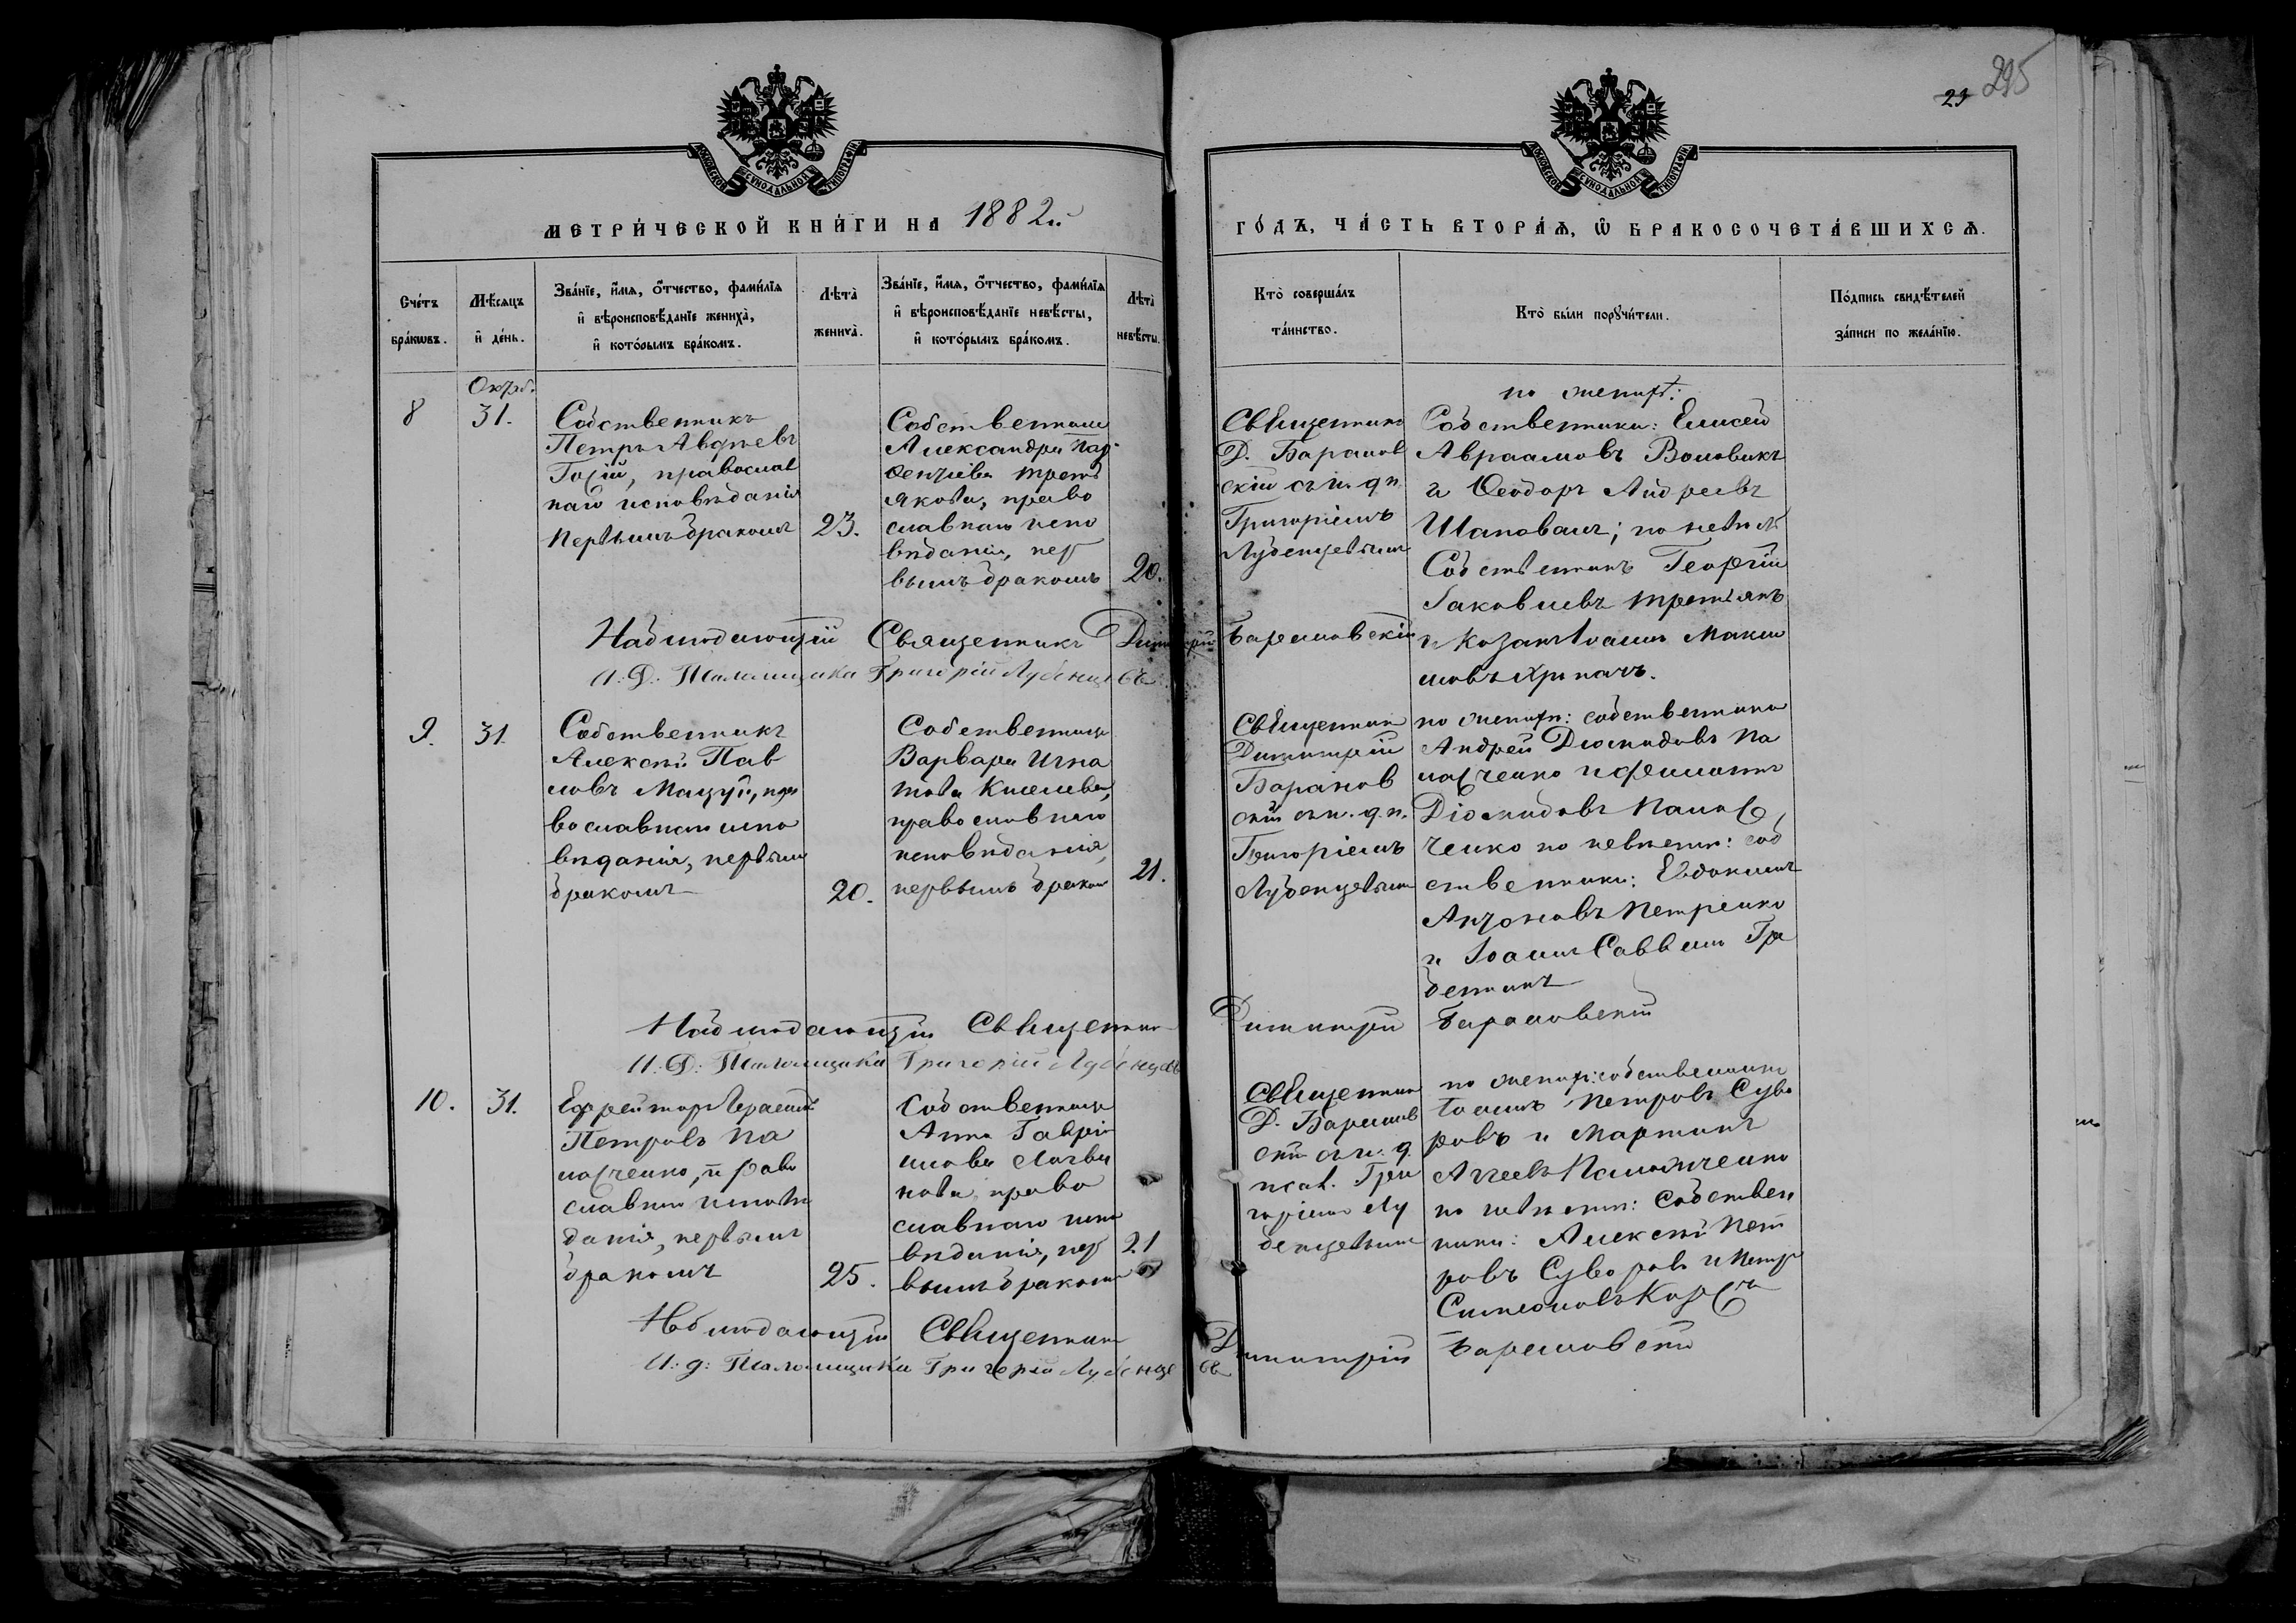 23 295
МОСКОВСКОЙ СУНОДАЛЬНОЙ ТИПОГРАФІИ
МОСКОВСКОЙ СУНОДАЛЬНОЙ ТИПОГРАФІИ
МЕТРИ́ЧЕСКОЙ КНИ́ГИ НА 1882й
ГО́ДЪ, ЧА́СТЬ ВТОРА́Ѧ, Ѽ БРАКОСОЧЕТА́ВШИХСѦ.
Сче́тъ
бра́кѡвъ.
Мѣ́сѧцъ
и҆ де́нь.
Зва́нїе, и҆́мѧ, ѻ҆́тчество, фами́лїѧ
и҆ вѣроисповѣ́данїе жениха̀,
и҆ кото́рымъ бра́комъ.
Лѣта̀
жениха̀.
Зва́нїе, и҆́мѧ, ѻ҆́тчество, фами́лїѧ
и҆ вѣроисповѣ́данїе невѣ́сты,
и҆ кото́рымъ бра́комъ.
Лѣта̀
невѣ́сты.
Кто̀ соверша́лъ
та́инство.
Кто̀ бы́ли порꙋчи́тели.
По́дпись свидѣ́телей
за́писи по жела́нїю.
8
Октяб.
31.
Собственникъ
Петръ Авдѣевъ
православ
наго исповѣданія
первымъ бракомъ
23.
Собственница
Александра Пар
ѳентіева Треть
якова, право
славнаго испо
вѣданія, пер
вымъ бракомъ
20.
Священникъ
Д. Баранов
скій съ и. д. п.
Григоріемъ
Лубенцевымъ
по жених:
Собственники: Елисей
Авраамовъ Воловикъ
и Ѳеодоръ Андреевъ
Шаповалъ; по невѣс
Собственникъ Георгій
Іаковлевъ Третьякъ
и козакъ Іоаннъ Макси
мовъ
Наблюдающій Священникъ Димитрій Барановскій
И. Д. Псаломщика Григорій Лубенцевъ
9.
31.
Собственникъ
Алексѣй Пав
ловъ Мацуй, пра
вославнаго испо
вѣданія, первымъ
бракомъ
20.
Собственница
Варвара Игна
това Киселева,
православнаго
исповѣданія,
первымъ браком
21.
Священник
Димитрій
Баранов
скій съ и. д. п.
Григоріемъ
Лубенцевымъ
по жених: собственники
Андрей Діомидовъ Па
насченко и
Діомидовъ Панас
ченко по невѣсти: соб
ственники: Евдокимъ
Антоновъ Петренко
и Іоаннъ Саввинъ Гре
бенникъ
Наблюдающій Священник Димитрій Барановскій
И. Д. Псаломщика Григорій Лубенцевъ
10.
31.
Ефрейторъ Герасимъ
Петровъ Па
насченко, право
славнаго исповѣ
данія, первымъ
бракомъ
25.
Собственница
Анна Гаврі
илова Логви
нова, право
славнаго испо
вѣданія, пер
вымъ бракомъ
21
Священник
Д. Баранов
скій съ и. д.
псал. Гри
горіемъ Лу
бенцевымъ
по жених: собственники
Іоаннъ Петровъ Суво
ровъ и Мартинъ
Панасченко
по невѣсти: Собствен
ники: Алексѣй Пет
ровъ Суворовъ и Петръ
Симеоновъ
Наблюдающій Священник Димитрій Барановскій
И. д. Псаломщика Григорій Лубенцевъ